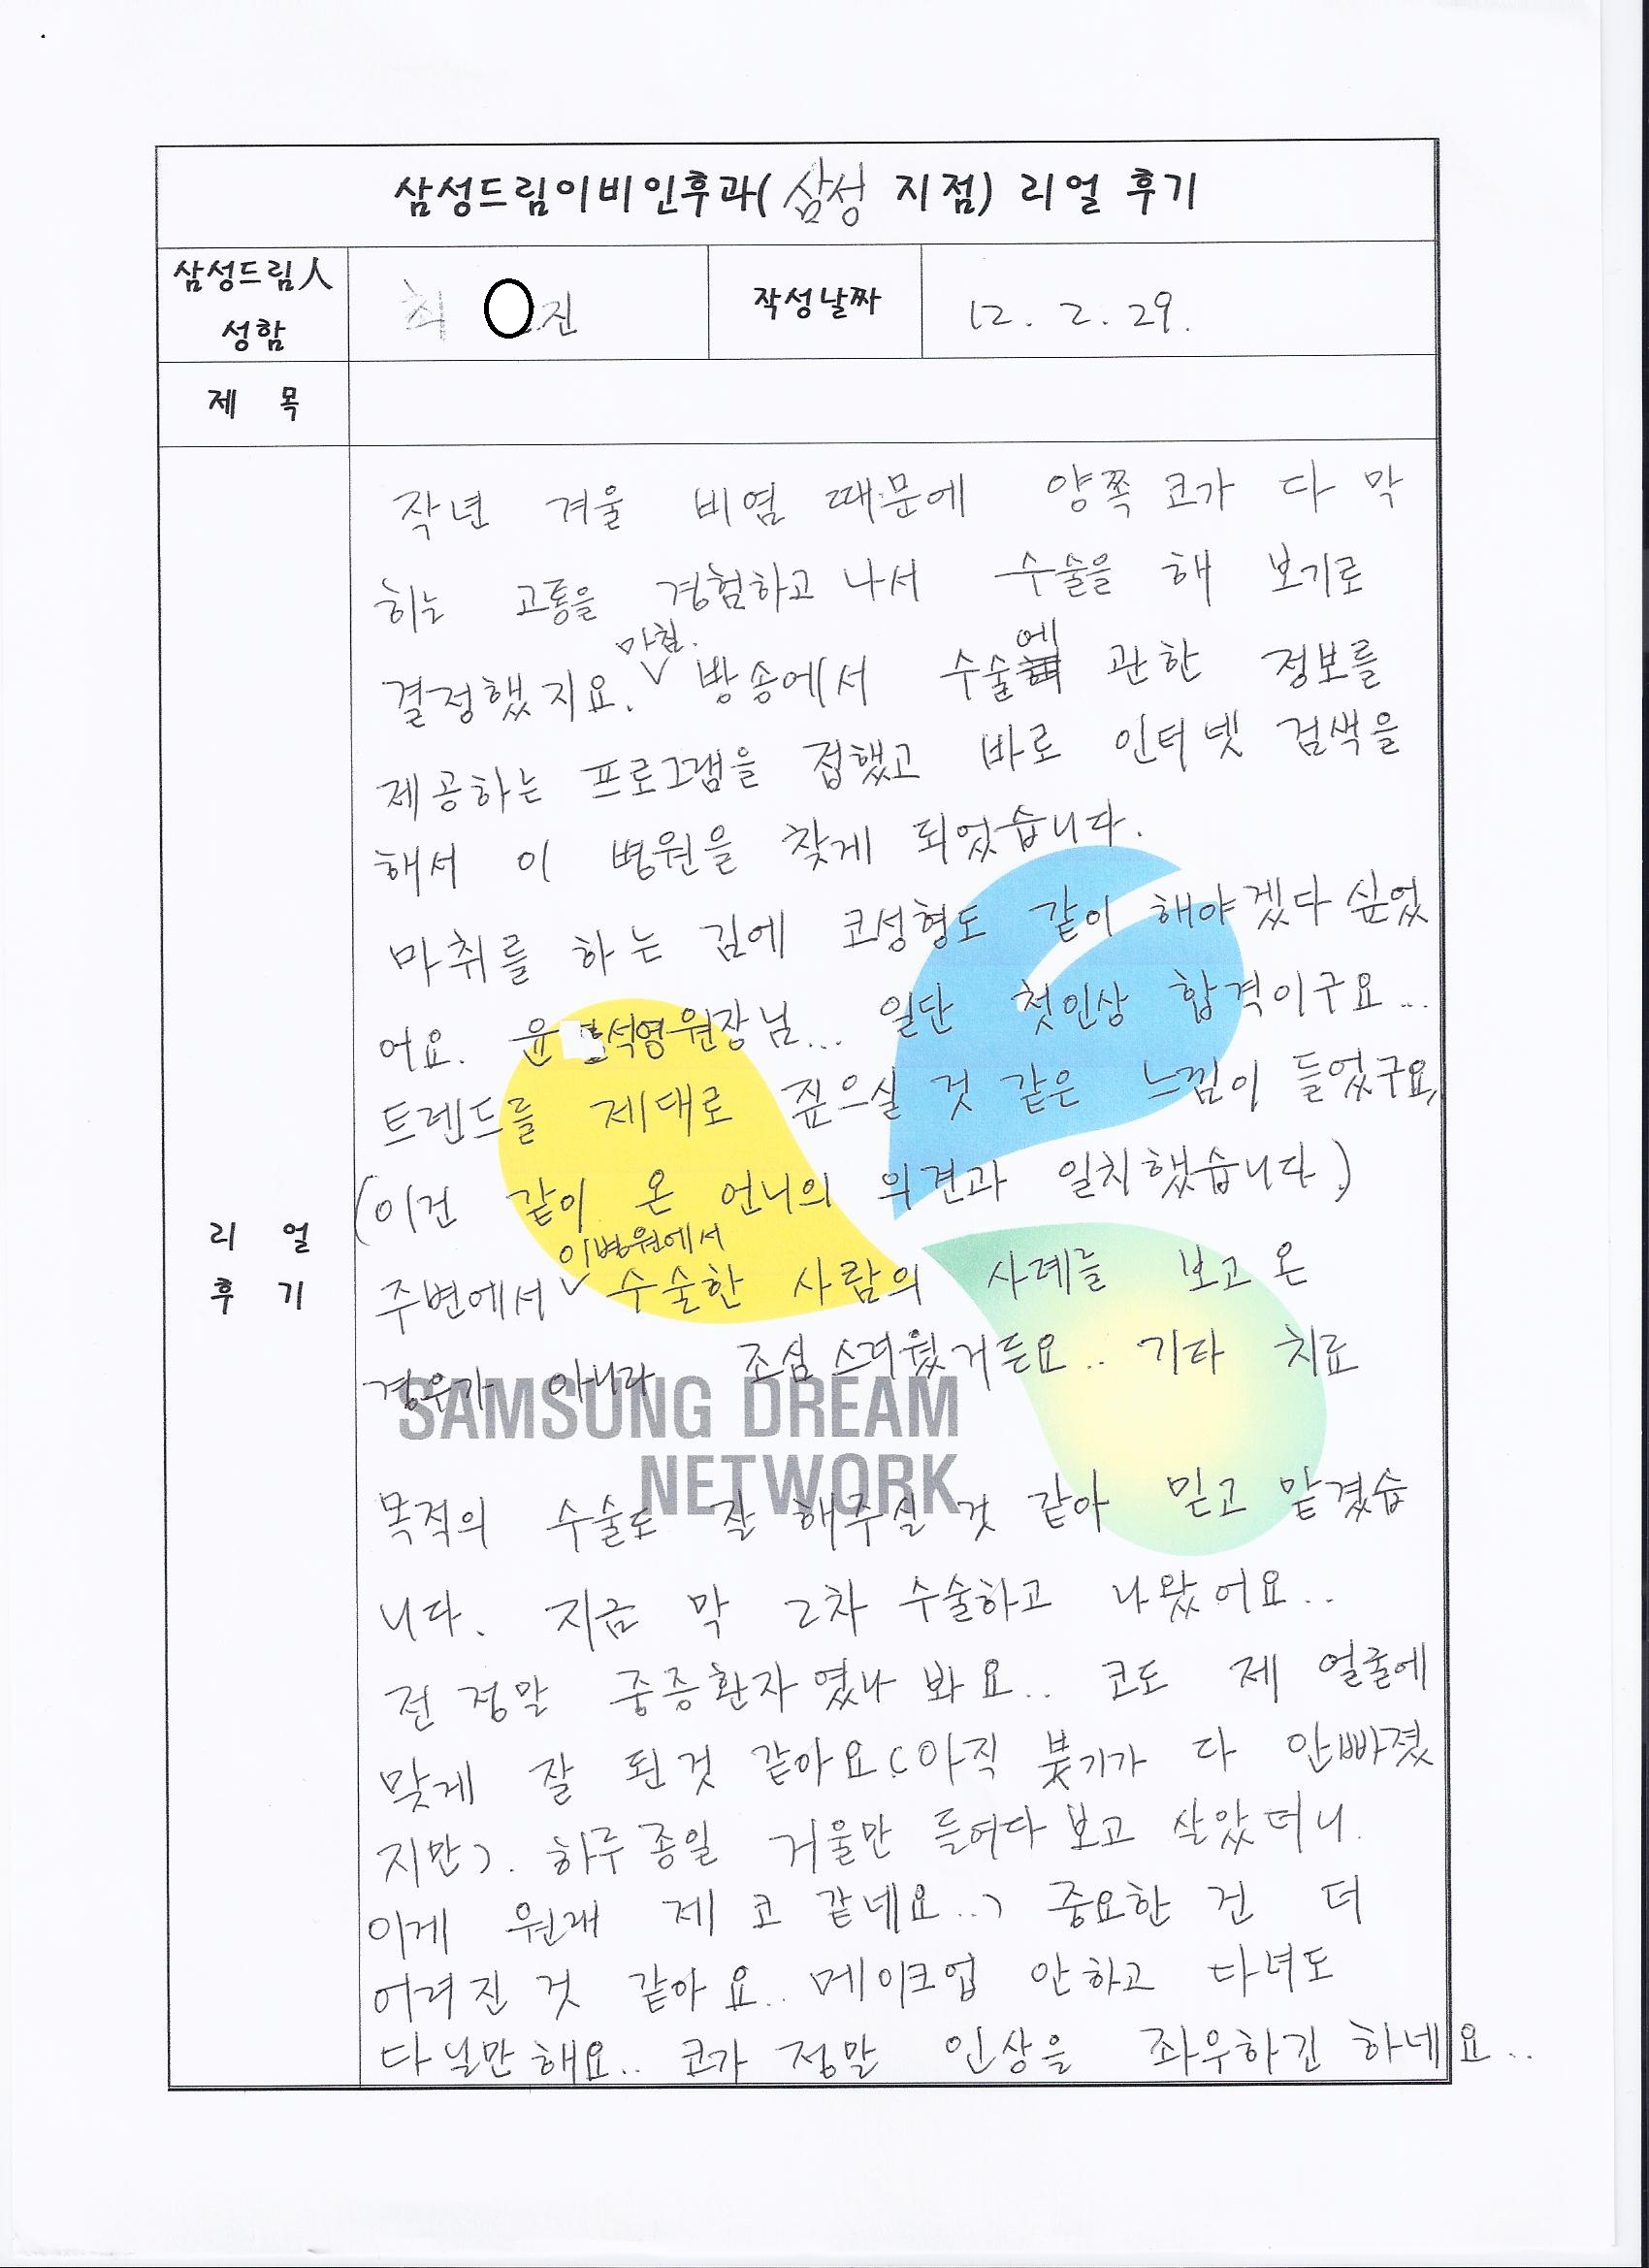 삼성드림이비인후과(삼성 지점) 리얼 후기
삼성드림人 성함
최 진
작성날짜
12. 2. 29.
제 목
리 얼 후 기
작년 겨울 비염 때문에 양쪽 코가 다 막
히는 고통을 경험하고 나서 수술을 해 보기로
결정했지요. 마침. 방송에서 수술에 관한 정보를
제공하는 프로그램을 접했고 바로 인터넷 검색을
해서 이 병원을 찾게 되었습니다.
마취를 하는 김에 코성형도 같이 해야겠다 싶었
어요. 윤 석영원장님... 일단 첫인상 합격이구요...
트렌드를 제대로 짚으실 것 같은 느낌이 들었구요,
(이건 같이 온 언니의 의견과 일치했습니다.)
주변에서 이병원에서 수술한 사람의 사례를 보고 온
경우가 아니라 조심스러웠거든요.. 기타 치료
SAMSUNG DREAM
NETWORK
목적의 수술도 잘 해주실 것 같아 믿고 맡겼습
니다. 지금 막 2차 수술하고 나왔어요..
전 정말 중증환자였나 봐요.. 코도 제 얼굴에
맞게 잘 된것 같아요(아직 붓기가 다 안빠졌
지만). 하루종일 거울만 들여다보고 살았더니.
이게 원래 제 코 같네요..) 중요한 건 더
어려진 것 같아요.. 메이크업 안하고 다녀도
다닐만해요.. 코가 정말 인상을 좌우하긴 하네요..